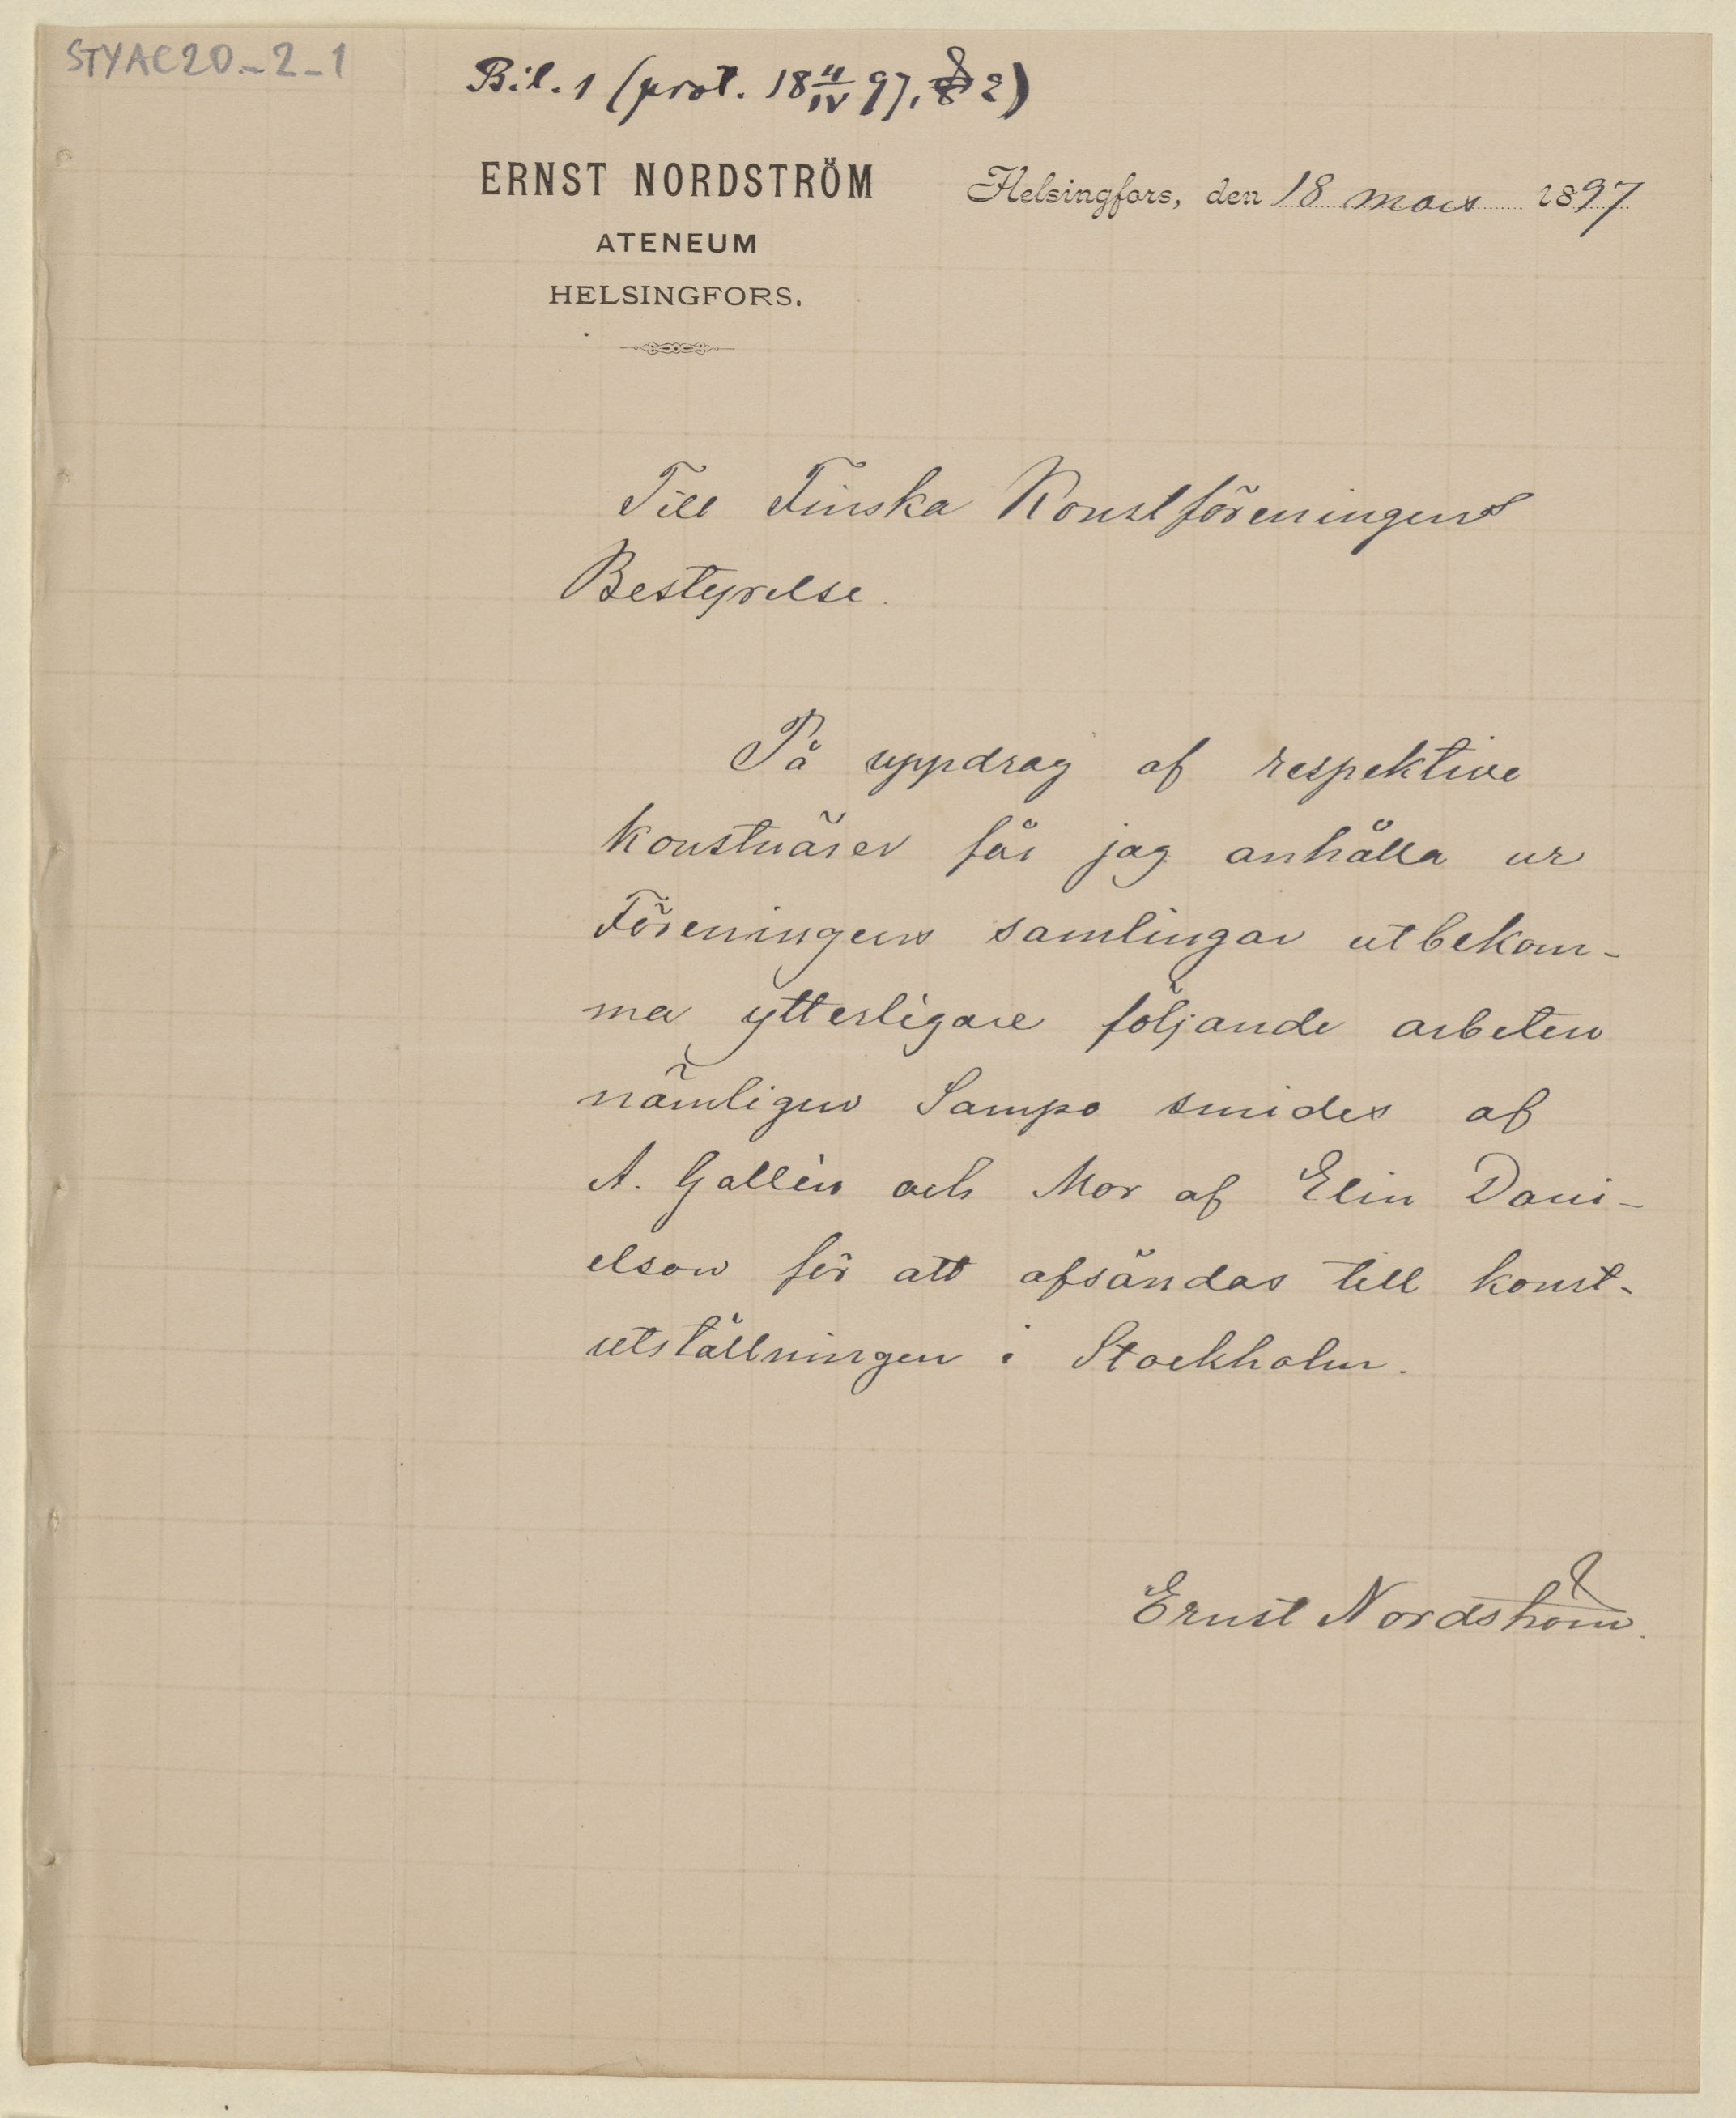 STYAC20_2_1
Bil. 1 (prot. 18 4/IV 97, § 2)
ERNST NORDSTRÖM
ATENEUM
HELSINGFORS.
Helsingfors, den 18 mars 1897
Till Finska Konstföreningens
Bestyrelse.
På uppdrag af respektive
konstnärer får jag anhålla ur
Föreningens samlingar utbekom-
ma ytterligare följande arbeten
nämligen Sampo smides af
A. Gallén och Mor af Elin Dani-
elson för att afsändas till konst-
utställningen i Stockholm.
Ernst Nordström.